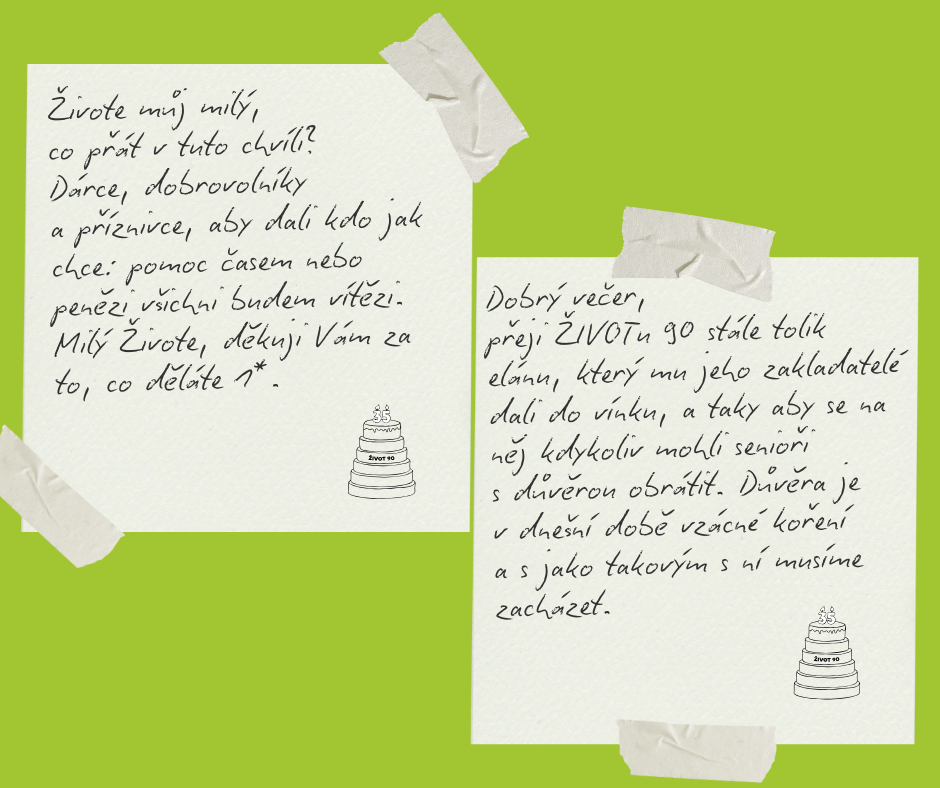 Živote můj milý,
co přát v tuto chvíli?
Dárce, dobrovolníky
a příznivce, aby dali kdo jak
chce: pomoc časem nebo
penězi všichni budem vítězi.
Milý Živote, děkuji Vám za
to, co děláte 1*.
35
ŽIVOT 90
Dobrý večer,
přeji ŽIVOTu 90 stále tolik
elánu, který mu jeho zakladatelé
dali do vínku, a taky aby se na
něj kdykoliv mohli senioři
s důvěrou obrátit. Důvěra je
v dnešní době vzácné koření
a s jako takovým s ní musíme
zacházet.
35
ŽIVOT 90